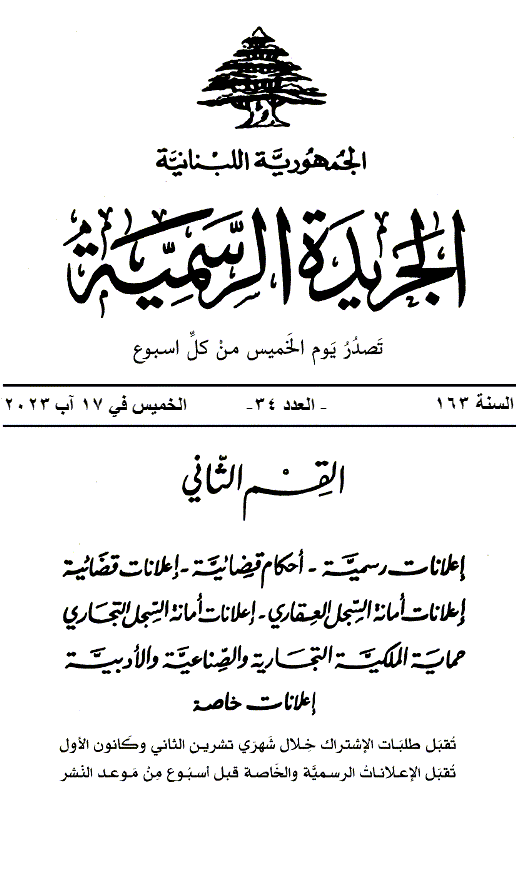 الجُمهُوريَّة اللبْنانيَّة
الجَريدَة الرَّسمِيَّة
تَصدُرُ يَوم الخَميس منْ كلِّ اسبوع
السنة ١٦٣ - العدد ٣٤- الخميس في ١٧ آب ٢٠٢٣
القِسْم الثّاني
إعلانات رسميَّة - أحكام قضائيَّة - إعلانات قضائية
إعلانات أمانة السِّجل العِقاري - إعلانات أمانة السِّجل التجاري
حماية الملكيَّة التجارية والصِّناعيَّة والأدبيَّة
إعلانات خاصة
تُقبَل طلبَات الإشتراك خِلال شَهرَي تشرين الثاني وكَانون الأول
تُقبَل الإعلانات الرسميَّة والخَاصة قبل أسبُوع مِنْ مَوعد النّشر